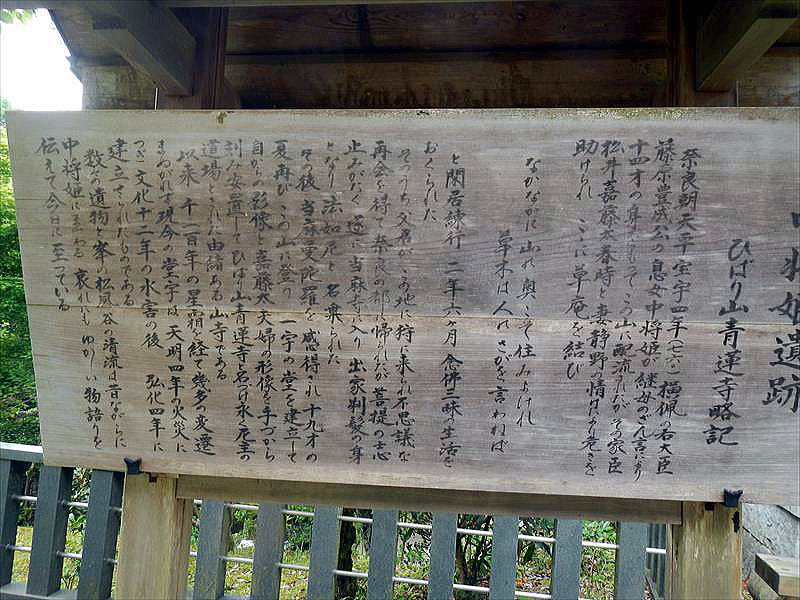 中将姫遺跡
ひばり山青蓮寺略記
奈良朝天平宝字四年(七六〇)横佩の右大臣
藤原豊成公の息女中将姫が継母のざん言により
十四才の身をもってこの山に配流されたがその家臣
松井嘉藤太春時と妻静野の情けにより危うきを
助けられ ここに草庵を結び
なかなかに 山の奥こそ住みよけれ
草木は人の さがを言わねば
と閑居練行 二年六ヶ月 念佛三昧の生活を
おくられた
そのうち父君が この地に狩に来られ不思議な
再会を得て奈良の都に帰られたが 菩提の志
止みがたく 遂に当麻寺に入り 出家剃髪の身
となり 法如尼と 名乗られた
その後 当麻曼陀羅を 感得され 十九才の
夏再び この山に登り 一宇の堂を建立して
自からの影像と 嘉藤太夫婦の形像を手づから
刻み安置して ひばり山青蓮寺と名づけ永く尼主の
道場とされた由緒ある山寺である
以来 千二百年の星霜を経て幾多の変遷
まぬがれず 現今の堂宇は 天明四年の火災に
つぎ文化十二年の水害の後 弘化四年に
建立されたものである
数々の遺物と峯の松風谷の清流は昔ながらに
中将姫にまつわる 哀れにも ゆかしい物語りを
伝えて今日に至っている